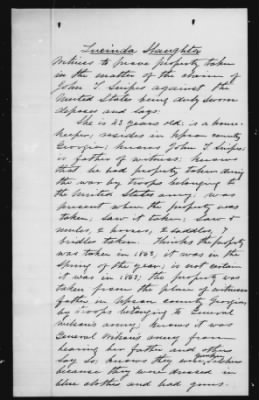 Lucinda Slaughter
Witness to prove property taken
in the matter of the claim of
John T. Snipes against the
United States being duly sworn
deposes and says:
She is 23 years old; is a house
keeper; resides in Upson county
Georgia; knows John T. Snipes
is father of witness; knows
that he had property taken during
the war by troops belonging to
the United States army; was
present when the property was
taken; saw it taken; saw
mules, 2 horses, 2 saddles, 7
bridles taken. Thinks the property
was taken in 1865, it was in the
Spring of the year; is not certain
it was in 1865; the property was
taken from the place of witness
father in Upson county Georgia
by troops belonging to General
Wilson's army; knows it was
General Wilson's army from
hearing her father and others
say so; knows they were soldiers
because they were dressed in
blue clothes and had guns.